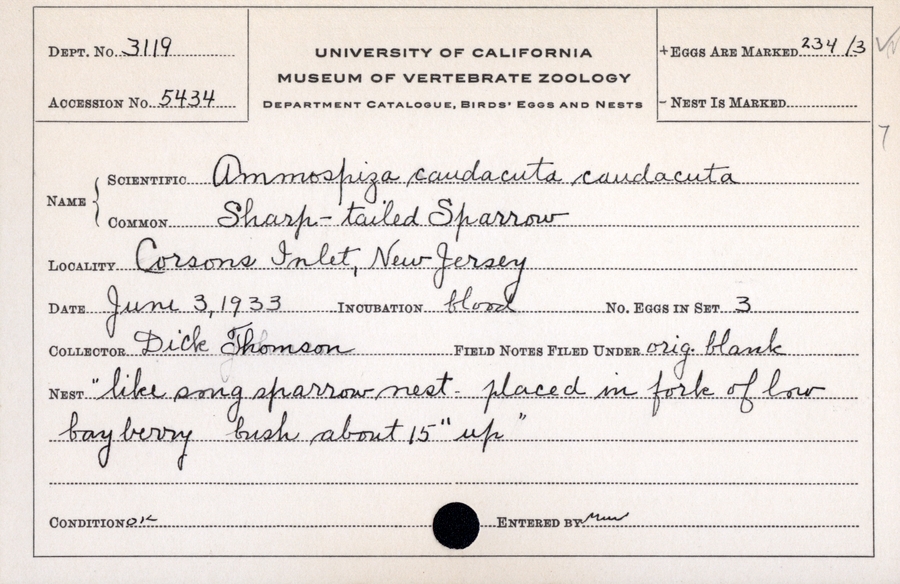 DEPT. No. 3119
UNIVERSITY OF CALIFORNIA
+ EGGS ARE MARKED 234/3
MUSEUM OF VERTEBRATE ZOOLOGY
ACCESSION No. 5434
DEPARTMENT CATALOGUE, BIRDS' EGGS AND NESTS
- NEST IS MARKED
7
NAME { SCIENTIFIC Ammospiza caudacuta caudacuta
COMMON Sharp-tailed Sparrow
LOCALITY Corsons Inlet, New Jersey
DATE June 3, 1933 INCUBATION blood No. EGGS IN SET 3
COLLECTOR Dick Thomson FIELD NOTES FILED UNDER orig. blank
NEST "like song sparrow nest - placed in fork of low
bay berry bush about 15" up"
CONDITION OK ENTERED BY